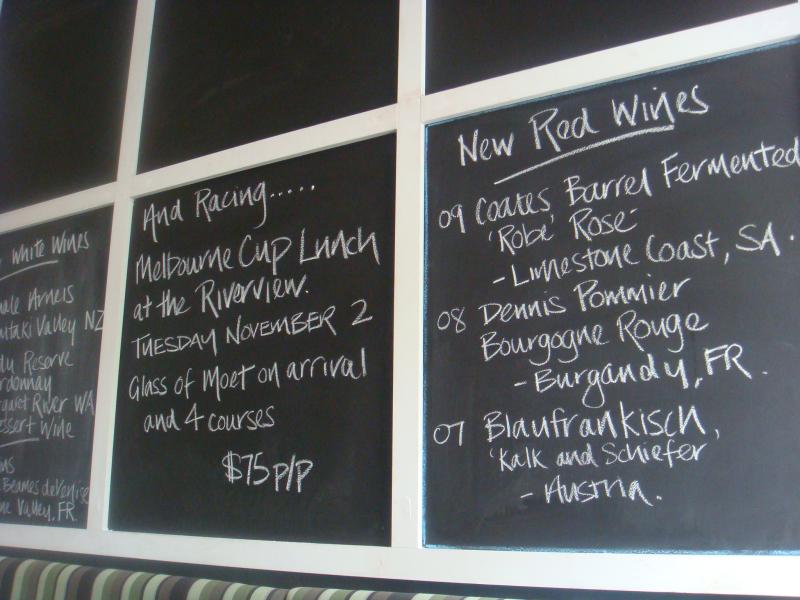 White Wines
Arneis
Valley NZ
Reserve
River WA
Wine
Beames de Venise
Valley, FR
And Racing.....
Melbourne Cup Lunch
at the Riverview.
TUESDAY NOVEMBER 2
Glass of Moet on arrival
and 4 courses
$75 p/p
New Red Wines
09 Coates Barrel Fermented
'Robe' Rose
- Limestone Coast, SA.
08 Dennis Pommier
Bourgogne Rouge
- Burgandy, FR.
07 Blaufrankisch,
'Kalk and Schiefer
- Austria.